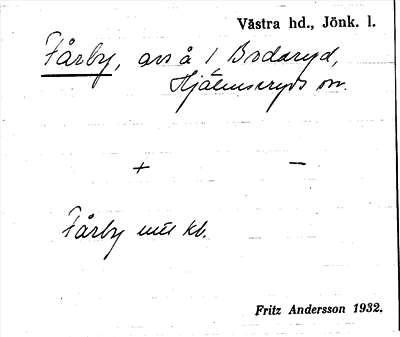 Västra hd., Jönk. l.
Fårby, avs å 1 Bodaryd,
Hjälmseryds sn.
+ —
Fårby kb.
Fritz Andersson 1932.